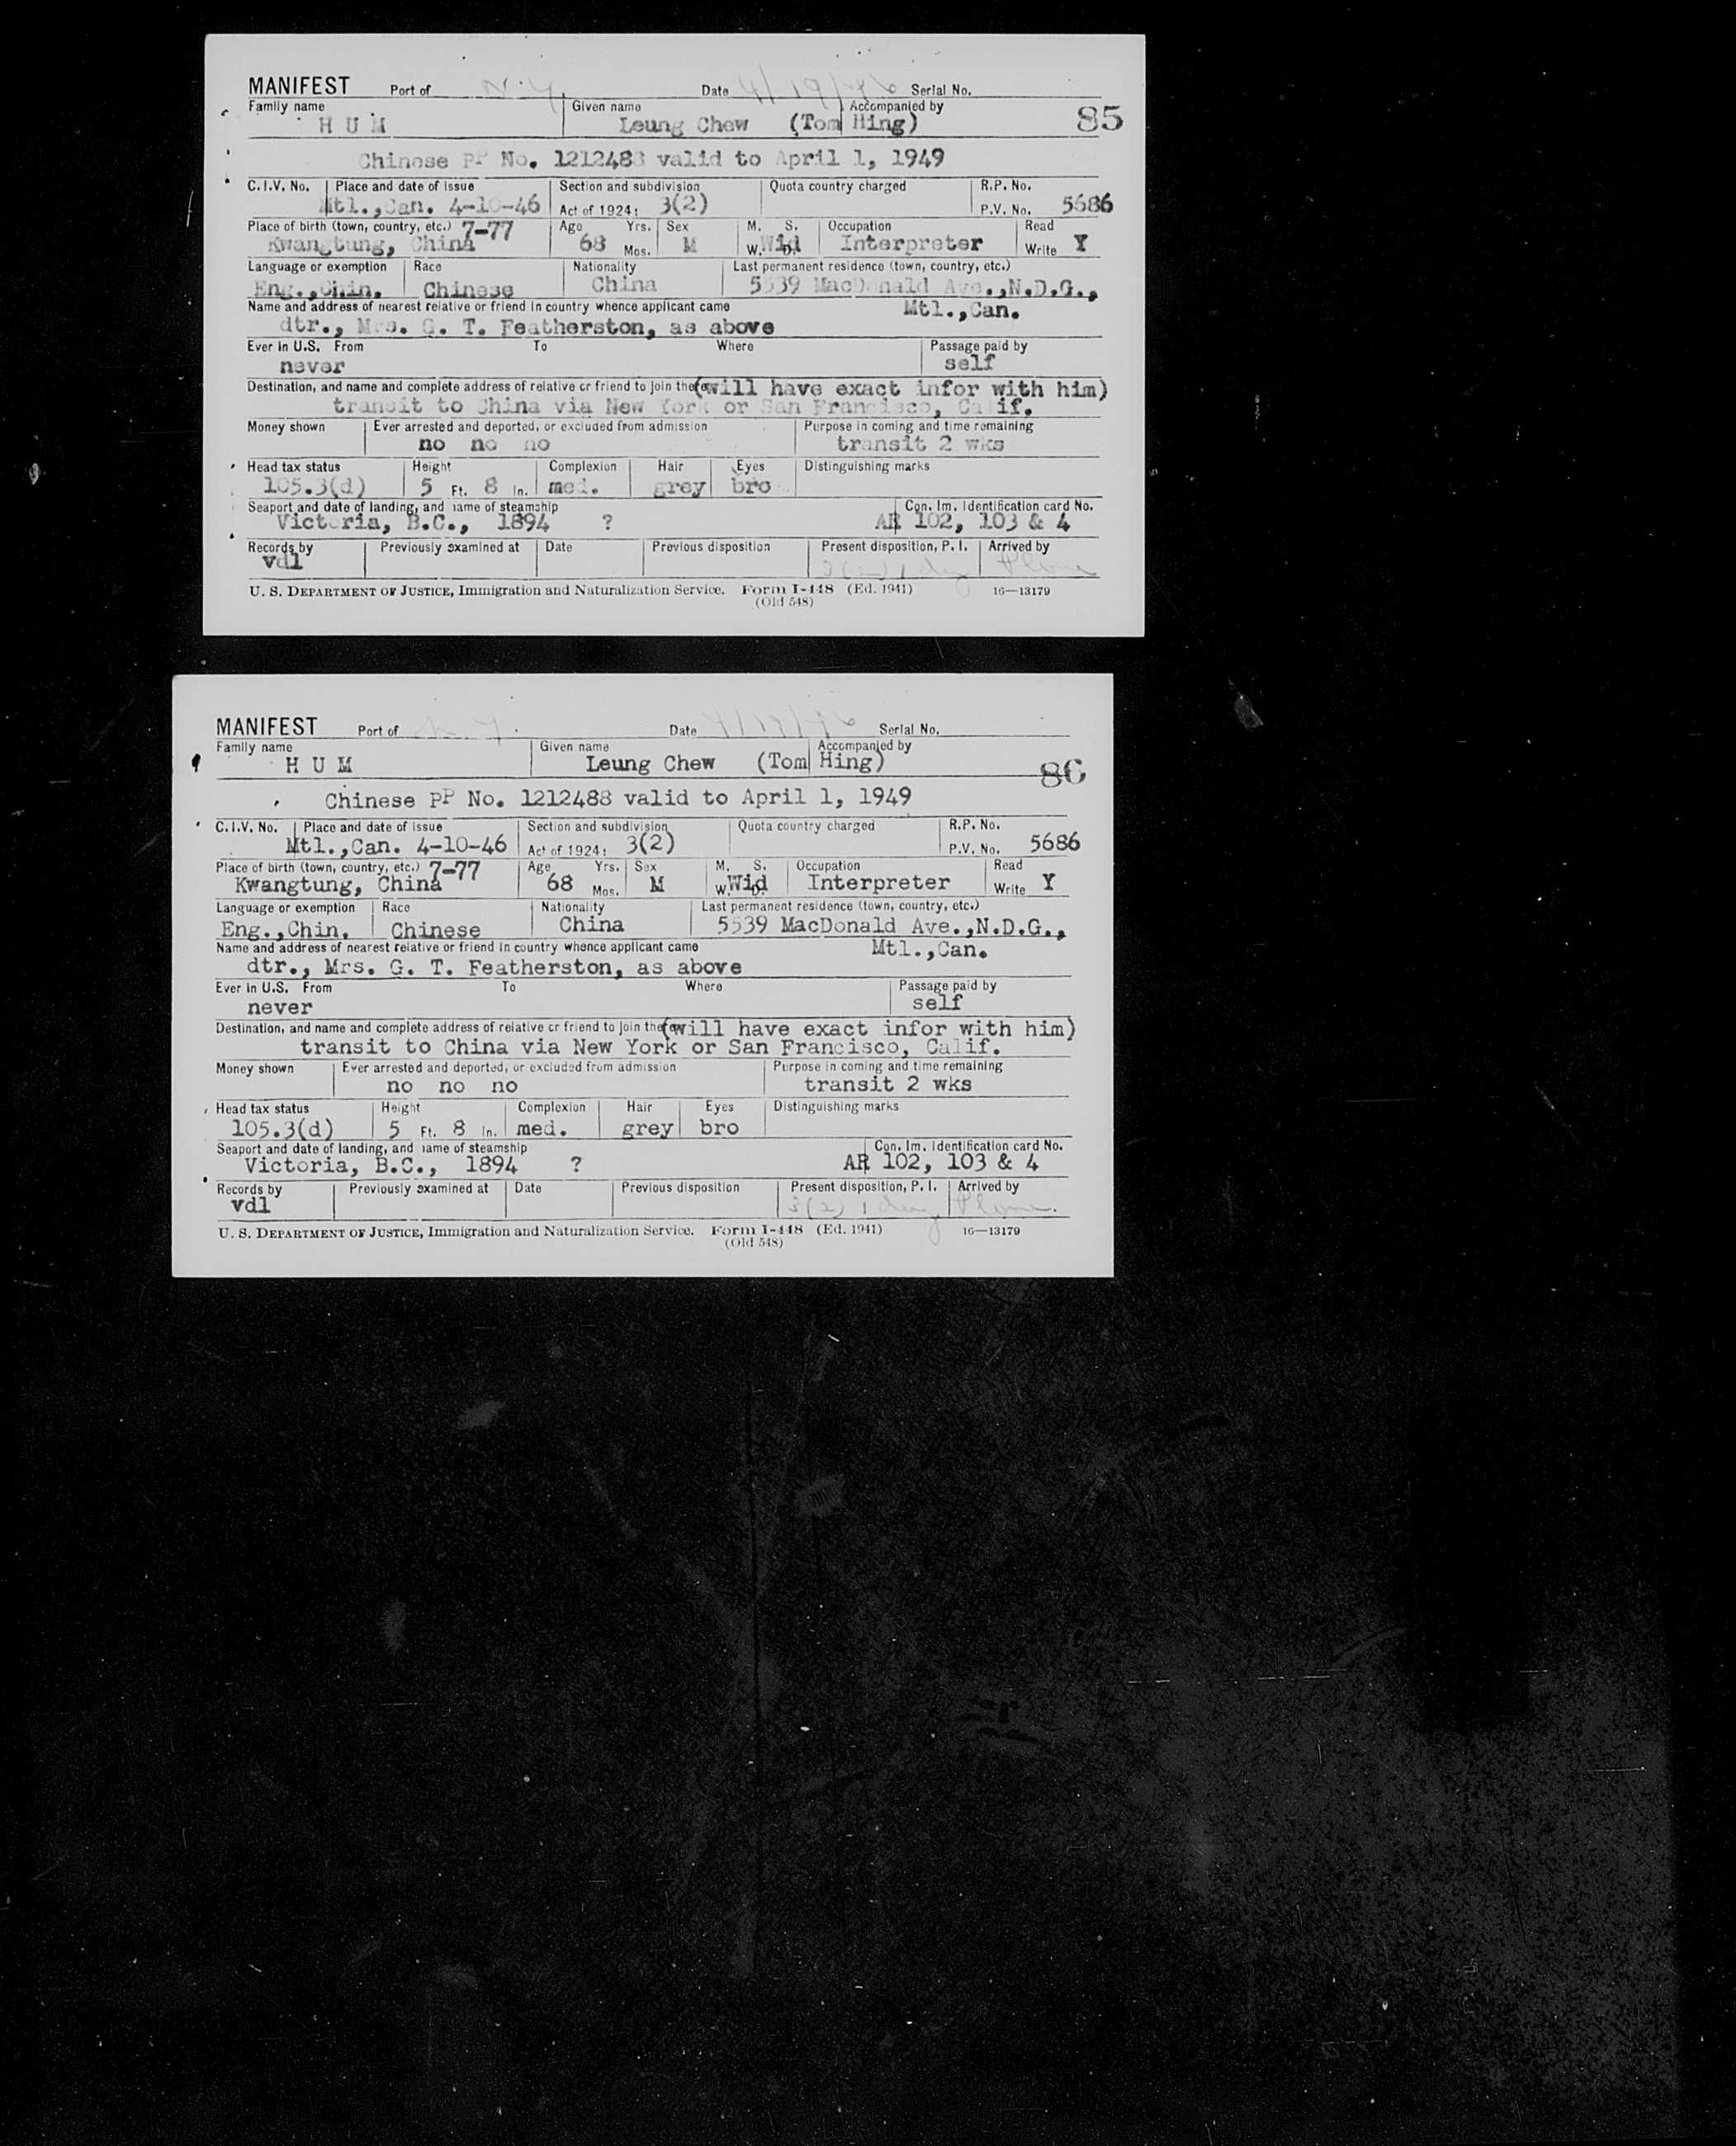 MANIFEST Port of N.Y. Date 4/19/46 Serial No.
Family name Given name Accompanied by
H U M Leung Chew (Tom Hing) 85
Chinese PP No. 1212488 valid to April 1, 1949
C.I.V. No. Place and date of issue Section and subdivision Quota country charged R.P. No.
Mtl.,Can. 4-10-46 Act of 1924: 3(2) P.V. No. 5686
Place of birth (town, country, etc.) 7-77 Age Yrs. Sex M. S. Occupation Read
Kwangtung, China 68 Mos. M W. Wid D. Interpreter Write Y
Language or exemption Race Nationality Last permanent residence (town, country, etc.)
Eng.,Chin. Chinese China 5539 MacDonald Ave.,N.D.G.,
Name and address of nearest relative or friend in country whence applicant came Mtl.,Can.
dtr., Mrs. G. T. Featherston, as above
Ever in U.S. From To Where Passage paid by
never self
Destination, and name and complete address of relative or friend to join there (will have exact infor with him)
transit to China via New York or San Francisco, Calif.
Money shown Ever arrested and deported, or excluded from admission Purpose in coming and time remaining
no no no transit 2 wks
Head tax status Height Complexion Hair Eyes Distinguishing marks
105.3(d) 5 Ft. 8 In. med. grey bro
Seaport and date of landing, and name of steamship Con. Im. Identification card No.
Victoria, B.C., 1894 ? AR 102, 103 & 4
Records by Previously examined at Date Previous disposition Present disposition, P. I. Arrived by
vdl 3(2) 1 day Plane
U. S. DEPARTMENT OF JUSTICE, Immigration and Naturalization Service. Form I-448 (Ed. 1941) 16—13179
(Old 548)
MANIFEST Port of N.Y. Date 4/19/46 Serial No.
Family name Given name Accompanied by
H U M Leung Chew (Tom Hing) 86
Chinese PP No. 1212488 valid to April 1, 1949
C.I.V. No. Place and date of issue Section and subdivision Quota country charged R.P. No.
Mtl.,Can. 4-10-46 Act of 1924: 3(2) P.V. No. 5686
Place of birth (town, country, etc.) 7-77 Age Yrs. Sex M. S. Occupation Read
Kwangtung, China 68 Mos. M W. Wid D. Interpreter Write Y
Language or exemption Race Nationality Last permanent residence (town, country, etc.)
Eng.,Chin. Chinese China 5539 MacDonald Ave.,N.D.G.,
Name and address of nearest relative or friend in country whence applicant came Mtl.,Can.
dtr., Mrs. G. T. Featherston, as above
Ever in U.S. From To Where Passage paid by
never self
Destination, and name and complete address of relative or friend to join there (will have exact infor with him)
transit to China via New York or San Francisco, Calif.
Money shown Ever arrested and deported, or excluded from admission Purpose in coming and time remaining
no no no transit 2 wks
Head tax status Height Complexion Hair Eyes Distinguishing marks
105.3(d) 5 Ft. 8 In. med. grey bro
Seaport and date of landing, and name of steamship Con. Im. Identification card No.
Victoria, B.C., 1894 ? AR 102, 103 & 4
Records by Previously examined at Date Previous disposition Present disposition, P. I. Arrived by
vdl 3(2) 1 day Plane.
U. S. DEPARTMENT OF JUSTICE, Immigration and Naturalization Service. Form I-448 (Ed. 1941) 16—13179
(Old 548)